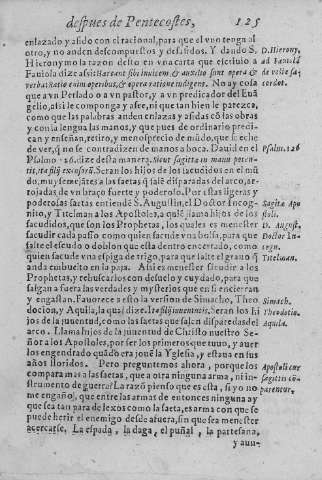 despues de Pentecostes, 125
enlazado y asido con el racional, para que el vno tenga al
otro, y no anden descompuestos y desasidos. Y dando S.
Hieronymo la razon desto en vna carta que escriuio a
Fauiola dize assi: Hærent sibi inuicem, & auxilio sunt opera &
verbis: ratio enim operibus, & opera ratione indigent. No ay cosa
que a vn Perlado o a vn pastor, y a vn predicador del Euã
gelio, assi le componga y asee, ni que tan bien le parezca,
como que las palabras anden enlazadas y asidas cõ las obras
y con la lengua las manos, y que pues de ordinario predi-
can y enseñan, retiro, y menosprecio de mũdo, que se eche
de ver, q̃ no se contradizen de manos a boca. Dauid en el
Psalmo 126. dize desta manera. Sicut sagittæ in manu poten-
tis, ita filij excussorũ. Seran los hijos de los sacudidos en el mũ
do, muy semejãtes a las saetas q̃ salẽ disparadas del arco, ar-
rojadas de vn braço fuerte y poderoso. Por estas ligeras y
poderosas saetas entiende S. Augustin, el Doctor Incog-
nito, y Titelman a los Apostoles, a quiẽ llama hijos de los
sacudidos, que son los Prophetas, los quales es menester
sacudir cada passo como quien sacude vna bolsa, para que
salte el escudo o doblon que esta dentro encerrado, como
quien sacude vna espiga de trigo, para que salte el grano q̃
anda embuelto en la paja. Assi es menester sacudir a los
Prophetas, y rehusarlos con desuelo y cuydado, para que
salgan a fuera las verdades y mysterios que en si encierran
y engastan. Fauorece a esto la version de Simacho, Theo
docion, y Aquila, la qual dize, Ita filij iuuentutis. Seran los hi
jos de la juuentud, como las saetas que salen disparadas del
arco. Llama hijos de la juuentud de Christo nuestro Se-
ñor a los Apostoles, por ser los primeros que tuuo, y auer
los engendrado quãdo era jouẽ la Yglesia, y estaua en sus
años floridos. Pero preguntemos ahora, porque los
compara mas a las saetas, que a otra ninguna arma, ni in-
strumento de guerra? La razõ pienso que es esta, si yo no
me engaño, que entre las armas de entonces ninguna ay
que sea tan para de lexos como la saeta, es arma con que se
puede herir el enemigo desde afuera, sin que sea menester
acercarse. La espada, la daga, el puñal, la partesana,
y auu-
D. Hierony.
ad Fauiolã
de veste sa-
cerdot.
Psalm. 126
Sagitta Apo
stoli.
D. August.
Doctor In-
cogn.
Titelman.
Simach.
Theodotio.
Aquila.
Apostoli cur
sagittis com
parentur.